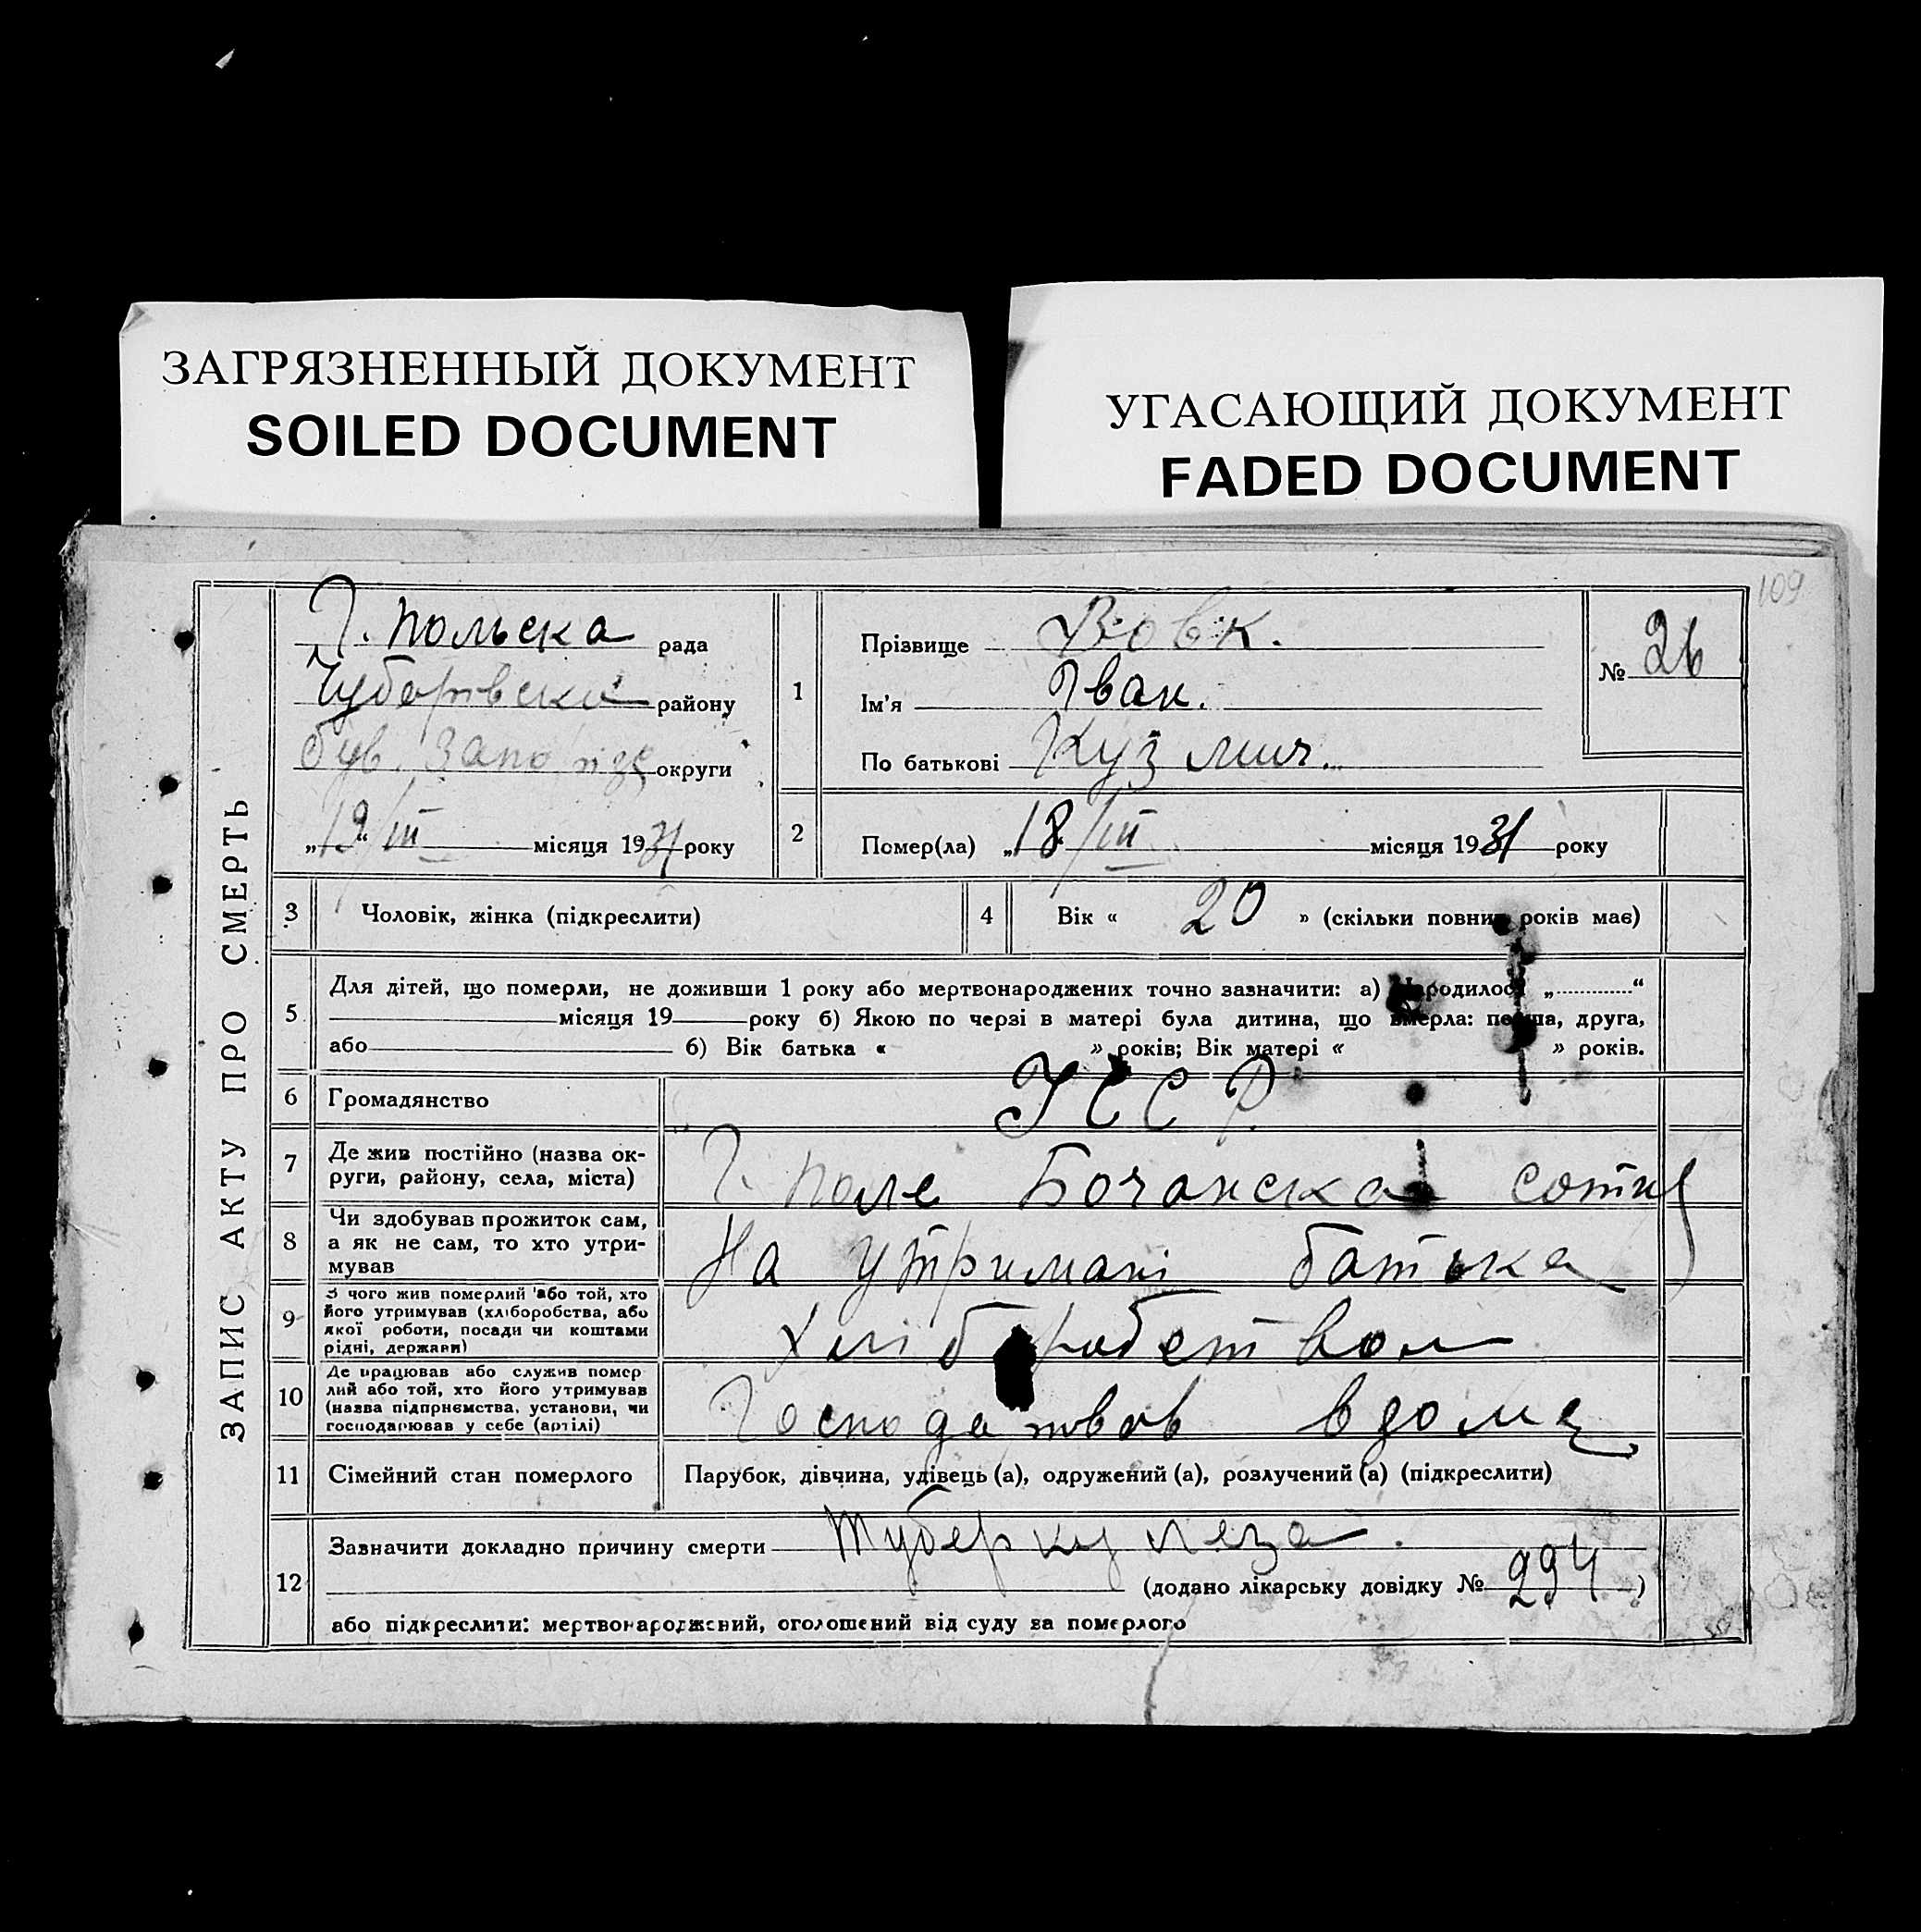 ЗАГРЯЗНЕННЫЙ ДОКУМЕНТ
SOILED DOCUMENT
УГАСАЮЩИЙ ДОКУМЕНТ
FADED DOCUMENT
109
ЗАПИС АКТУ ПРО СМЕРТЬ
Г. польска рада
Чубарівск району
був. Запоріз округи
„19“/III місяця 1931 року
1
Прізвище Вовк.
Ім'я Іван.
По батькові Кузмич.
№ 26
2 Помер(ла) „18/III місяця 1931 року
3 Чоловік, жінка (підкреслити)
4 Вік « 20 » (скільки повних років має)
5 Для дітей, що померли, не доживши 1 року або мертвонароджених точно зазначити: а) Народилося „ “
місяця 19 року б) Якою по черзі в матері була дитина, що вмерла: перша, друга,
або б) Вік батька « » років; Вік матері « » років.
6 Громадянство УССР
7 Де жив постійно (назва ок-
руги, району, села, міста) Г. поле Бочанска сотня
8 Чи здобував прожиток сам,
а як не сам, то хто утри-
мував На утримані батька
9 З чого жив померлий або той, хто
його утримував (хліборобства, або
якої роботи, посади чи коштами
рідні, держави) Хліборобством
10 Де працював або служив помер
лий або той, хто його утримував
(назва підпрнємства, установи, чи
господарював у себе (артілі) вдома
11 Сімейний стан померлого Парубок, дівчина, удівець (а), одружений (а), розлучений (а) (підкреслити)
12 Зазначити докладно причину смерти туберкулеза.
(додано лікарську довідку № 294)
або підкреслити: мертвонароджений, оголошений від суду за померлого